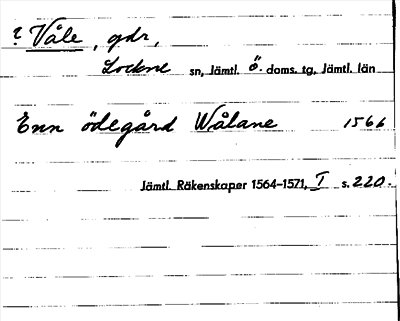 ? Våle, gdr,
Lockne sn, Jämtl. Ö. doms. tg, Jämtl. län
Enn ödegård Wålane 1566
Jämtl. Räkenskaper 1564-1571, I s. 220.